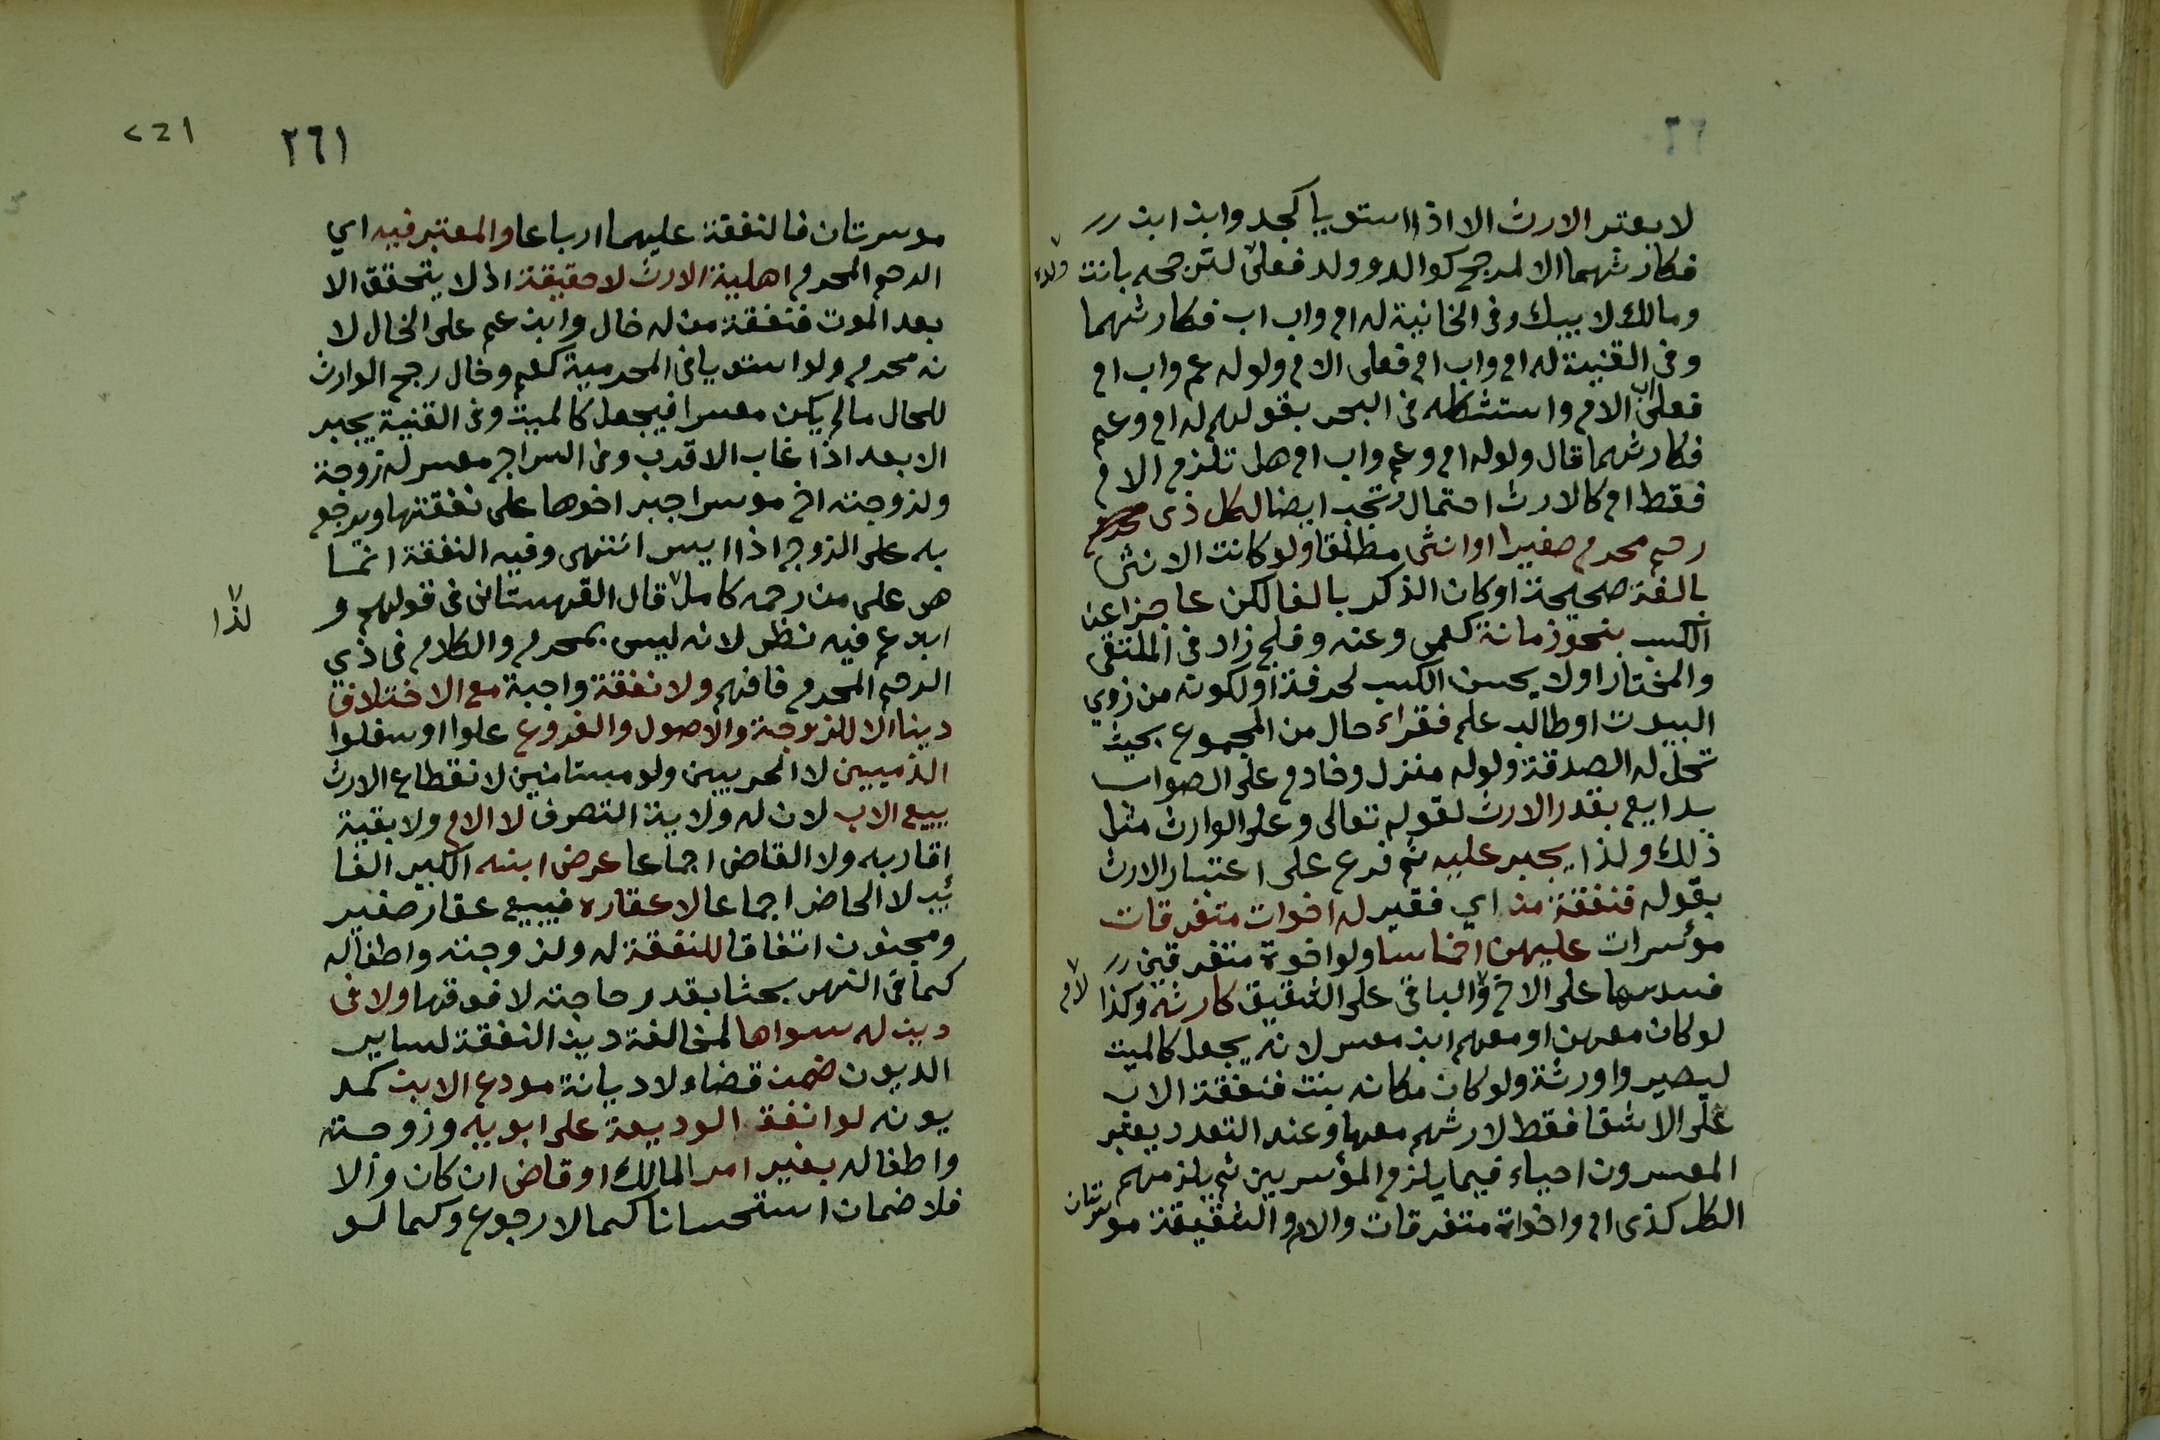 لا يعتبر الارث الا اذا استويا كجد وابن ابن
فكارثهما الا لمرجح كوالد وولد فعلى لترجحه بانت
ولده
ومالك لابيك وفى الخانية له ام واب اب فكارثهما
وفى القنية له ام واب ام فعلى الام ولو له عم واب ام
فعلى اب الام واستشكله فى البحر بقولهم له ام وعم
فكارثهما قال ولو له ام وعم واب ام هل تلزم الام
فقط ام كالارث احتمال وتجب ايضا لكل ذى محرم
رحم محرم صغير او انثى مطلقا ولو كانت الانثى
بالغة صحيحة او كان الذكر بالغا لكن عاجزا عن
الكسب بنحو زمانة كعمى وعته وفلج زاد فى الملتقى
والمختار او لا يحسن الكسب لحرفة او لكونه من زوي
البيوت او طالب علم فقراء حال من المجموع بحيث
تحل له الصدقة ولو له منزل وخادم على الصواب
بدايع بقدر الارث لقوله تعالى وعلى الوارث مثل
ذلك ولذا يجبر عليه ثم فرع على اعتبار الارث
بقوله فنفقة من اي فقير له اخوات متفرقات
مؤسرات عليهن اخماسا ولو اخوة متفرقين
فسدسها على الاخ والباقى على الشقيق كارثه وكذا
لام
لو كان معهن او معهم ابن معسر لانه يجعل كالميت
ليصيروا ورثة ولو كان مكانه بنت فنفقة الاب
على الاشقا فقط لارثهم معها وعند التعدد يعتبر
المعسرون احياء فيما يلزم المؤسرين ثم يلزمهم
الكل كذى ام واخوات متفرقات والام والشقيقة موسرتان
٢٦١
261
موسرتان فالنفقة عليهما ارباعا والمعتبر فيه اي
الرحم المحرم اهلية الارث لا حقيقة اذ لا يتحقق الا
بعد الموت فنفقة من له خال وابن عم على الخال لا
نه محرم ولو استويا فى المحرمية كعم وخال رجح الوارث
للحال مالم يكن معسرا فيجعل كالميت وفى القنية يجبر
الابعد اذا غاب الاقرب وفى السراج معسر له زوجة
ولزوجته اخ موسر اجبر اخوها على نفقتها ويرجع
به على الزوج اذا ايسر انتهى وفيه النفقة انما
هى على من رحمه كامل قال القهستانى فى قولهم و
لذا
ابن عم فيه نظر لانه ليس بمحرم والكلام فى ذي
الرحم المحرم فافهم ولا نفقة واجبة مع الاختلاف
دينا الا للزوجة والاصول والفروع علوا او سفلوا
الذميين لا الحربيين ولو مستامنين لانقطاع الارث
يبيع الاب لان له ولاية التصرف لا الام ولا بقية
اقاربه ولا القاضى اجماعا عرض ابنه الكبير الغا
ئب لا الحاضر اجماعا لا عقاره فيبيع عقار صغير
ومجنون اتفاقا للنفقة له ولزوجته واطفاله
كما فى النهر بحثا بقدر حاجته لا فوقها ولا فى
دين له سواها لمخالفة دين النفقة لساير
الديون ضمن قضاء لا ديانة مودع الابن كمد
يونه لو انفق الوديعة على ابويه وزوجته
واطفاله بغير امر المالك او قاض ان كان والا
فلا ضمان استحسانا كما لا رجوع وكما لو